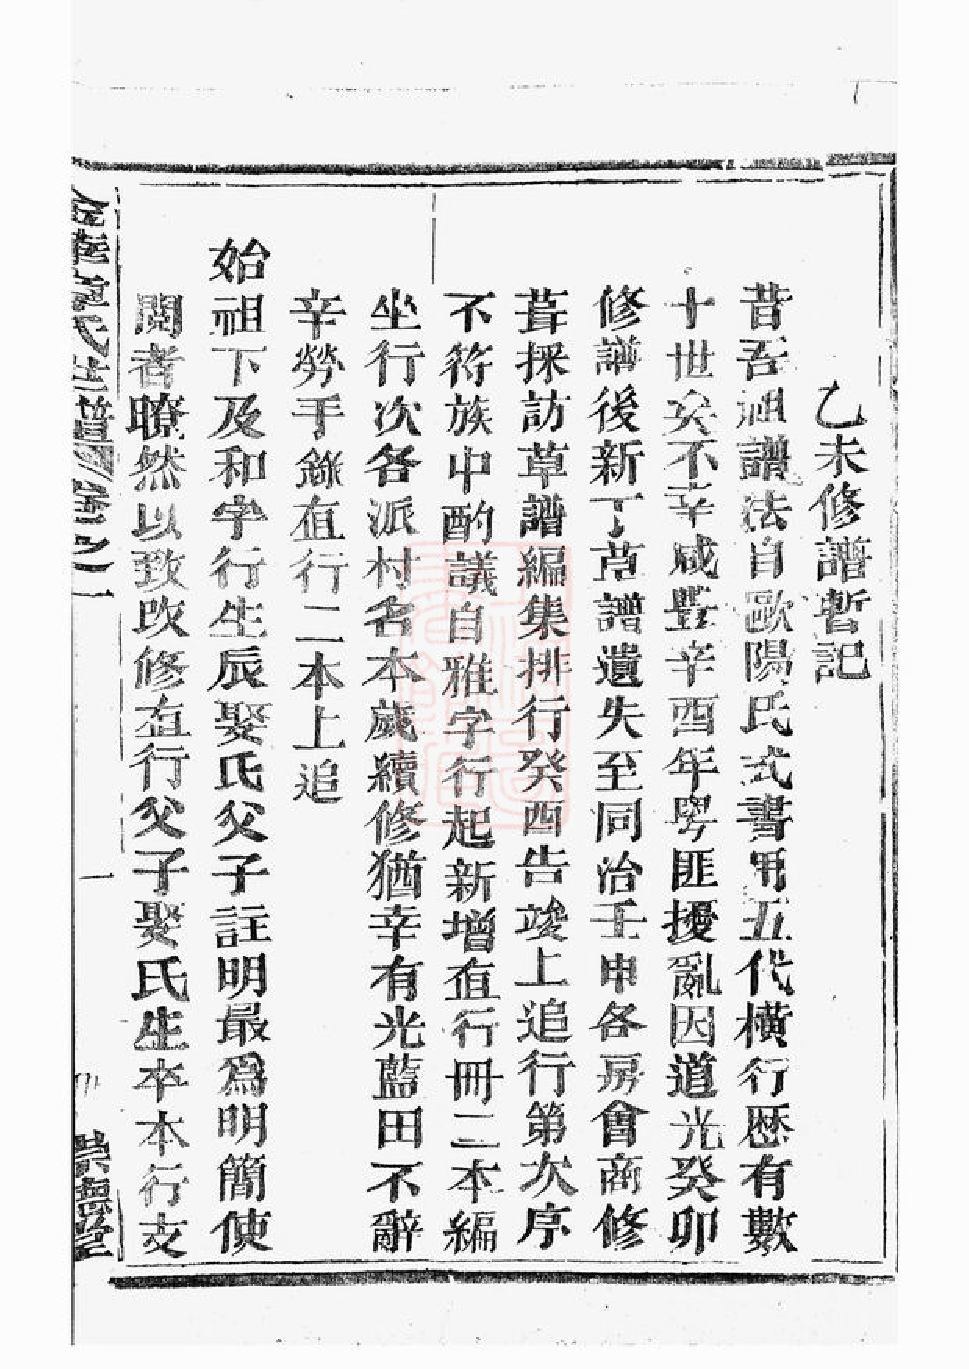 乙未修譜暫記
昔吾祖譜法自歐陽氏式書用五代橫行歷有數
十世矣不幸咸豐辛酉年粤匪擾亂因道光癸卯
修譜後新丁草譜遺失至同治壬申各房會商修
葺採訪草譜編集排行癸酉告竣上追行第次序
不符族中酌議自雅字行起新增直行冊二本編
坐行次各派村名本歲續修猶幸有光藍田不辭
辛勞手錄直行二本上追
始祖下及和字行生辰娶氏父子註明最爲明簡使
閱者瞭然以致改修直行父子娶氏生卒本行支
金華 氏世譜 卷之一
一
崇德堂